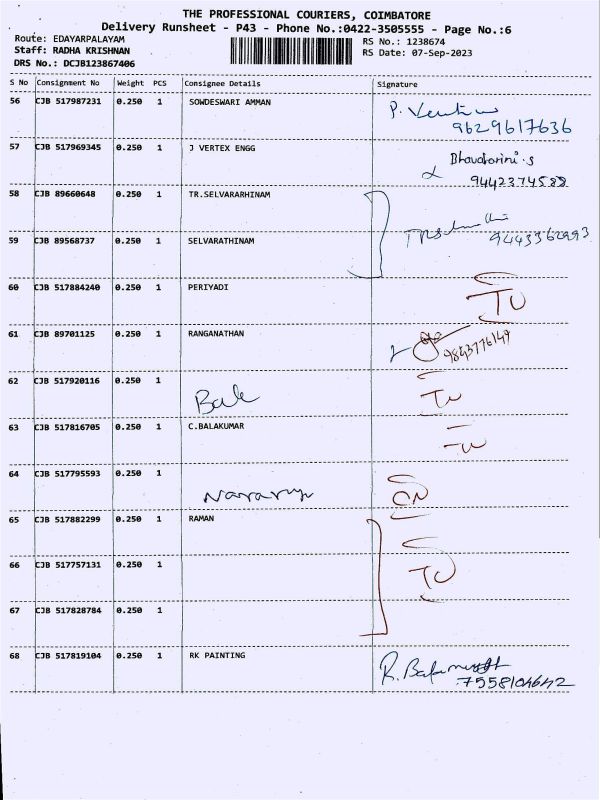 THE PROFESSIONAL COURIERS, COIMBATORE
Delivery Runsheet - P43 - Phone No.:0422-3505555 - Page No.:6
Route: EDAYARPALAYAM
RS No.: 1238674
Staff: RADHA KRISHNAN
RS Date: 07-Sep-2023
DRS No.: DCJB123867406
S No Consignment No Weight PCS Consignee Details Signature
56 CJB 517987231 0.250 1 SOWDESWARI AMMAN P.
9629617636
57 CJB 517969345 0.250 1 J VERTEX ENGG Bhavatharini.S
9442374588
58 CJB 89660648 0.250 1 TR.SELVARARHINAM
59 CJB 89568737 0.250 1 SELVARATHINAM 9443362993
60 CJB 517884240 0.250 1 PERIYADI
TU
61 CJB 89701125 0.250 1 RANGANATHAN
9843776149
62 CJB 517920116 0.250 1
Bale TU
63 CJB 517816705 0.250 1 C.BALAKUMAR
TU
64 CJB 517795593 0.250 1
ON
65 CJB 517882299 0.250 1 RAMAN
66 CJB 517757131 0.250 1 TU
67 CJB 517828784 0.250 1
68 CJB 517819104 0.250 1 RK PAINTING R.
7558104642